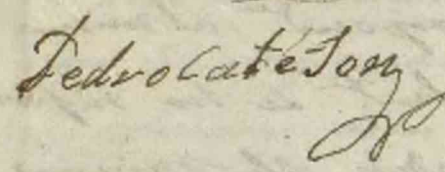 Pedro Catésony